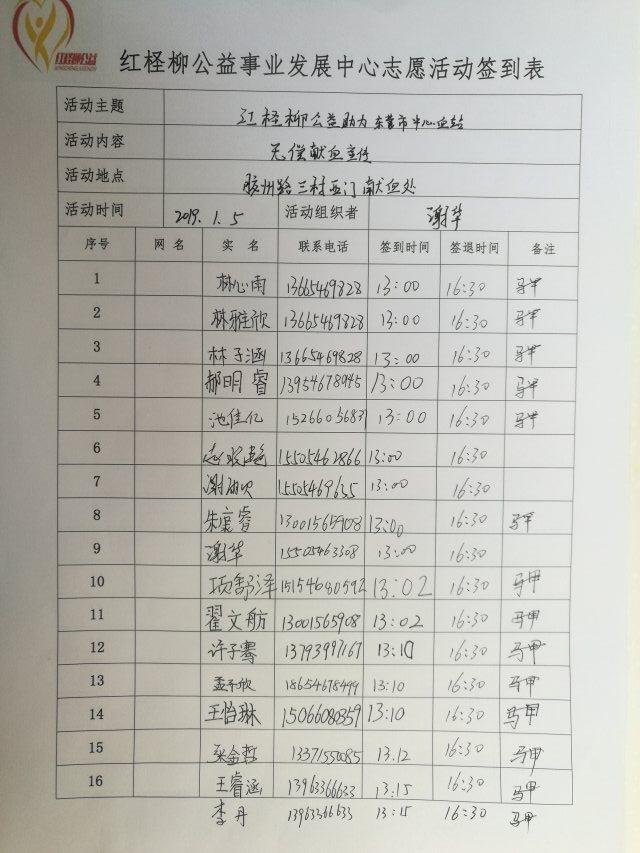 红柽柳公益
红柽柳公益事业发展中心志愿活动签到表
活动主题 红柽柳公益助力东营市中心血站
活动内容 无偿献血宣传
活动地点 胶州路三村西门献血处
活动时间 2019.1.5 活动组织者 谢华
序号 网名 实名 联系电话 签到时间 签退时间 备注
1 林心雨 13665469828 13:00 16:30 马甲
2 林雅欣 13665469828 13:00 16:30 马甲
3 林子涵 13665469828 13:00 16:30 马甲
4 郝明睿 13954678945 13:00 16:30 马甲
5 池佳亿 13:00 16:30 马甲
6 15505462866 13:00 16:30
7 15505469635 13:00 16:30
8 朱寰睿 13001565908 13:00 16:30 马甲
9 谢华 15505463308 13:00 16:30
10 项舒泽 15154680592 13:02 16:30 马甲
11 翟文舫 13001565908 13:02 16:30 马甲
12 许子骞 13793997167 13:10 16:30 马甲
13 孟子欣 18654678499 13:10 16:30 马甲
14 王怡琳 15066080359 13:10 16:30 马甲
15 金哲 13371550085 13.12 16:30 马甲
16 王睿涵 13963366633 13:15 16:30 马甲
李丹 13963366633 13:15 16:30 马甲